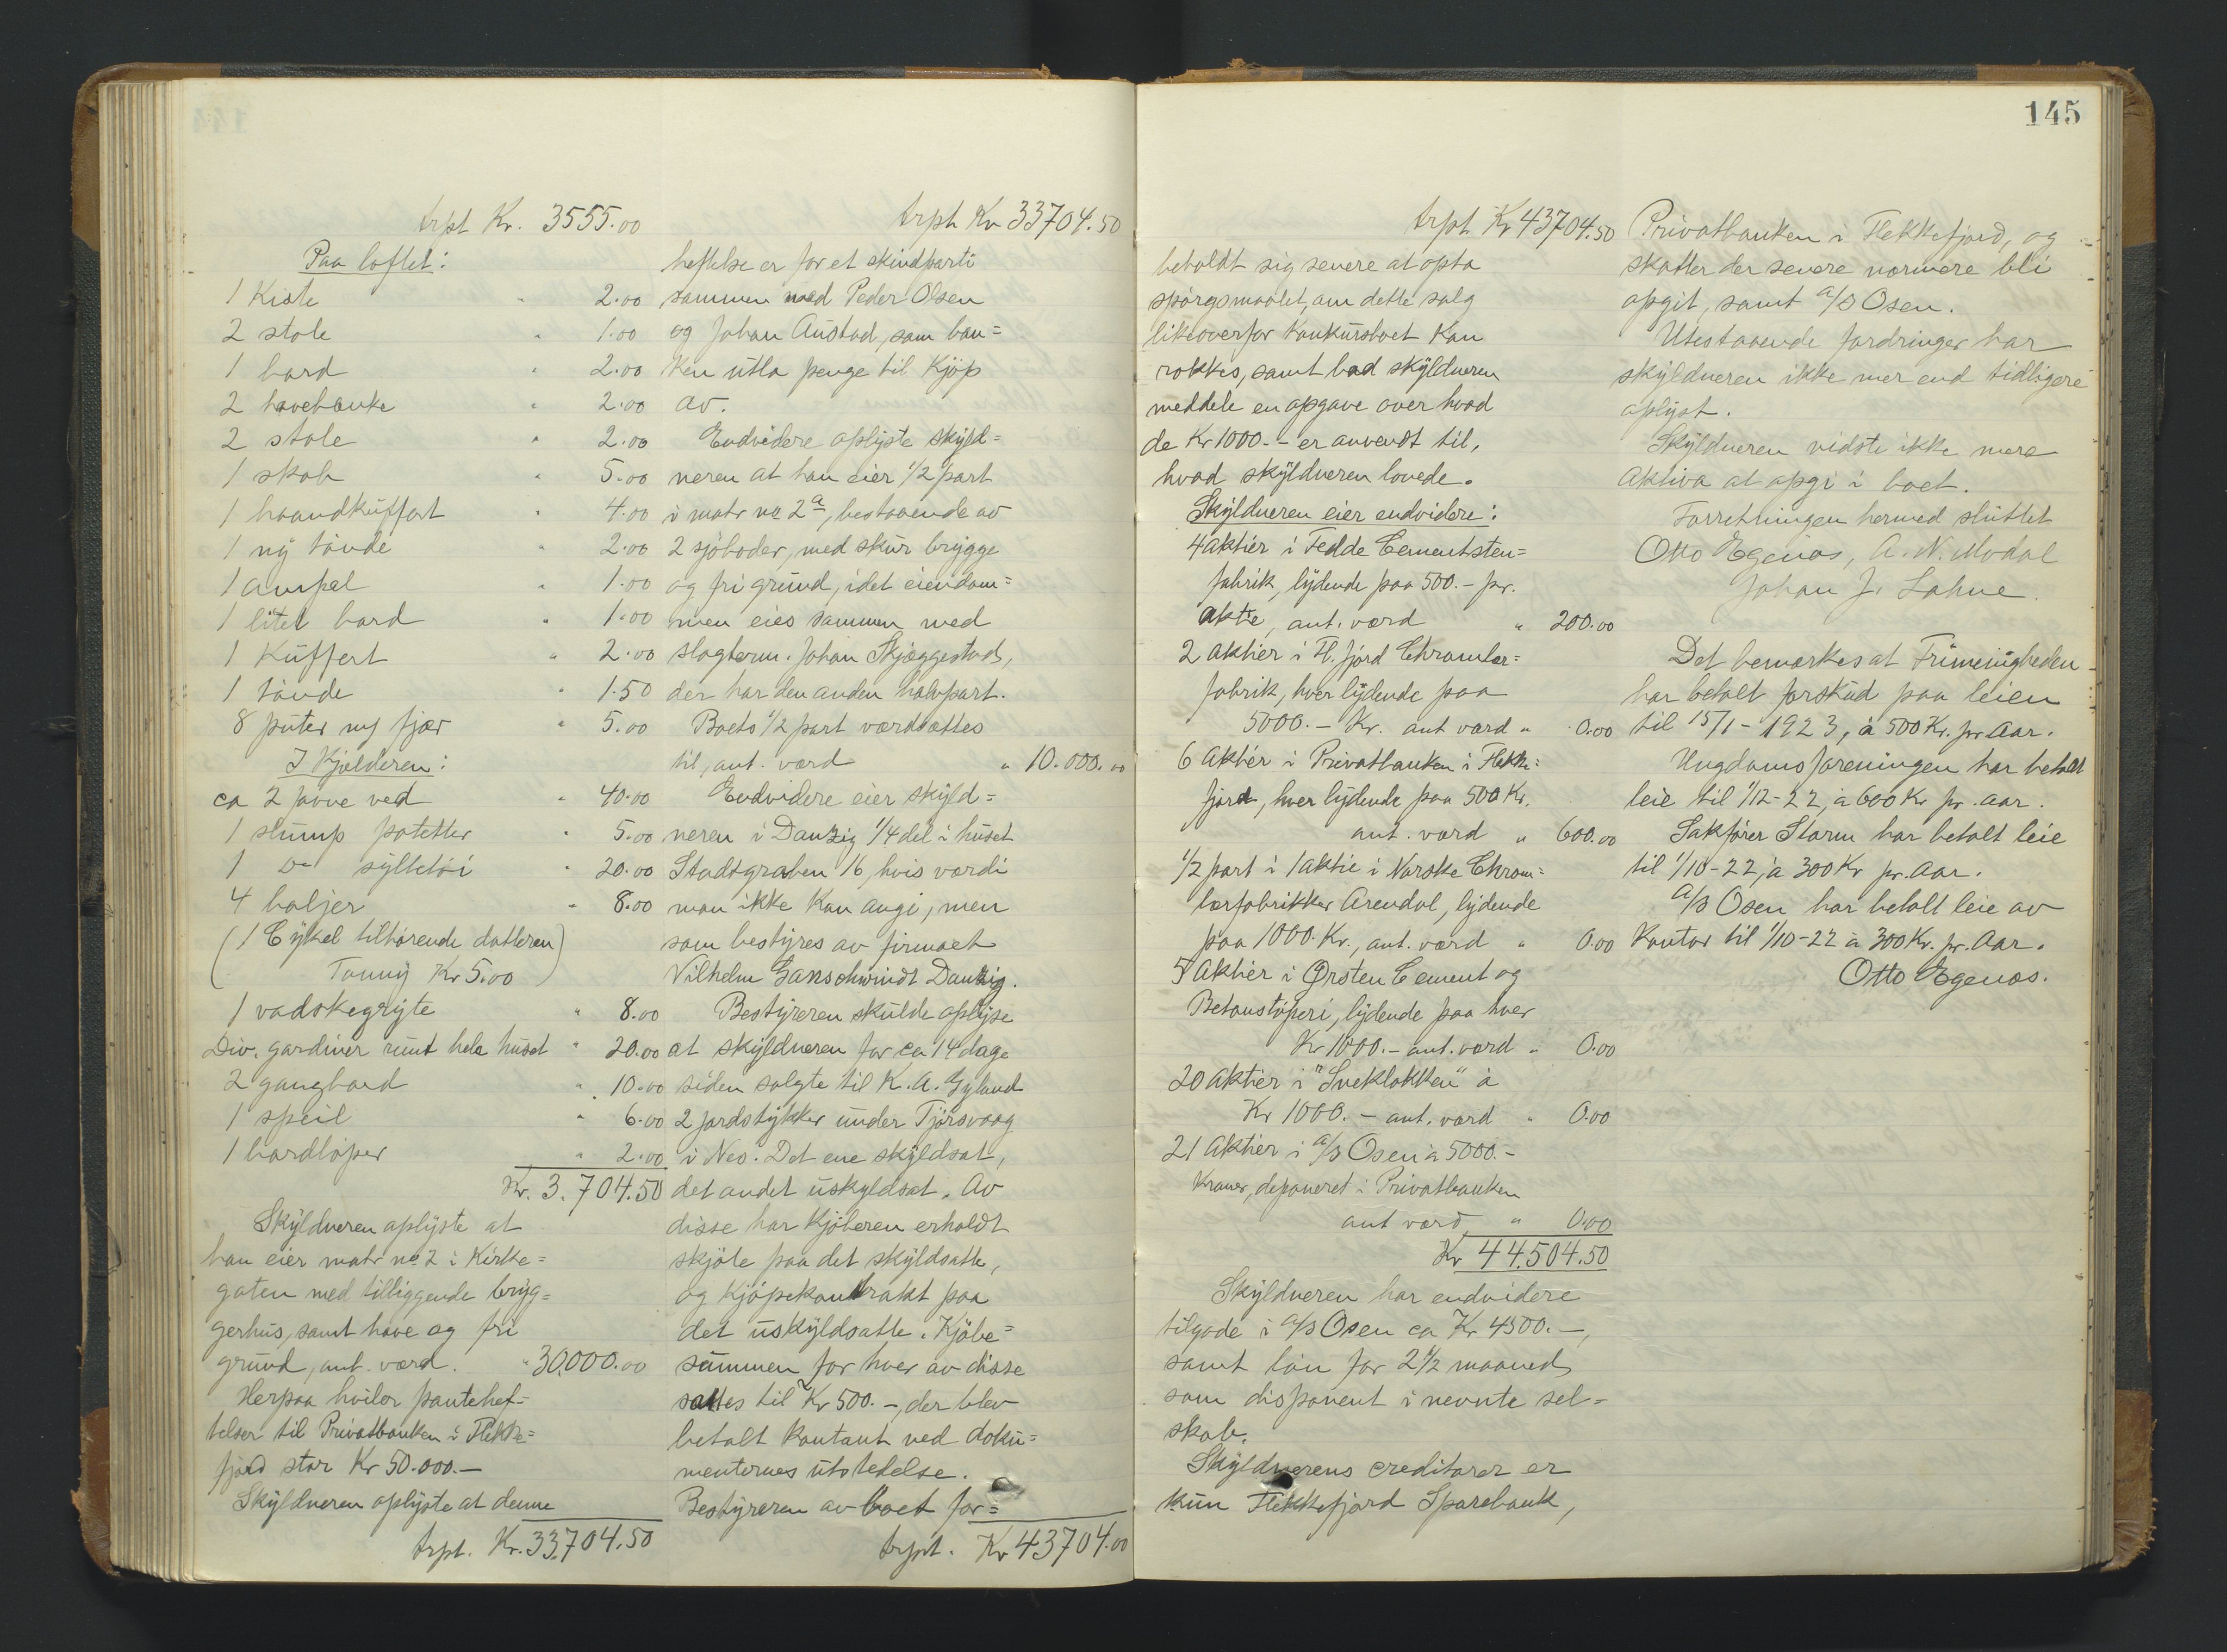 trpt Kr. 3555.00
Paa loftet:
1 Kiste " 2.00
2 stole " 1.00
1 bord " 2.00
2 havebænke " 2.00
2 stole " 2.00
1 skab " 5.00
1 haandkuffert " 4.00
1 ny tønde " 2.00
1 ampel " 1.00
1 litet bord " 1.00
1 Kuffert " 2.00
1 tønde " 1.50
8 puter m/ fjær " 5.00
I Kjelderen:
ca 2 favne ved " 40.00
1 slump poteter " 5.00
1 Do syltetøi " 20.00
4 baljer " 8.00
(1 Cykel tilhørende datteren
Tonny Kr 5.00)
1 vadskegryte " 8.00
Div. gardiner rundt hele huset " 20.00
2 gangbord " 10.00
1 speil " 6.00
1 bordløper " 2.00
Kr. 3.704.50
Skyldneren oplyste at
han eier matr no 2 i Kirke=
gaten med tilliggende bryg=
gerhus, samt have og fri
grund, ant. værd. " 30.000.00
Herpaa hviler pantehef=
telser til Privatbanken i Flekke=
fjord stor Kr 50.000.—
Skyldneren oplyste at denne
trpt. Kr. 33.704.50
trpt Kr 33704.50
heftelse er for et skindparti
sammen med Peder Olsen
og Johan Austad, som ban=
ken utla penge til Kjøp
av.
Endvidere oplyste skyld=
neren at han eier 1/2 part
i matr no 2a, bestaaende av
2 sjøboder, med skur brygge
og fri grund, idet eiendom=
men eies sammen med
slagterm. Johan Skjæggestad,
der har den anden halvpart.
Boets 1/2 part værdsættes
til, ant. værd " 10.000.00
Endvidere eier skyld=
neren i Danzig 1/4 del i huset
Stadtgraben 16, hvis værdi
man ikke kan angi, men
som bestyres av firmaet
Vilhelm Ganschwindt Danzig.
Bestyreren skulde oplyse
at skyldneren for ca 14 dage
siden solgte til K. A. Gyland
2 jordstykker under Tjørsvaag
i Nes. Det ene skyldsat,
det andet uskyldsat. Av
disse har Kjøberen erholdt
skjøte paa det skyldsatte,
og Kjøpekontrakt paa
det uskyldsatte. Kjøbe=
summen for hver av disse
sattes til Kr 500.—, der blev
betalt kontant ved doku=
menternes utstedelse.
Bestyreren av boet for=
trpt. Kr 43704.00
145
trpt Kr 43704.50
beholdt sig senere at opta
spørgsmaalet, om dette salg
likeoverfor konkursboet kan
rokkes, samt bad skyldneren
meddele en opgave over hvad
de Kr 1000.— er anvendt til,
hvad skyldneren lovede.
Skyldneren eier endvidere:
4 aktier i Fedde Cementsten=
fabrik, lydende paa 500.— pr.
aktie, ant. værd " 200.00
2 aktier i Fl.fjord Chromlær=
fabrik, hver lydende paa
5000.— Kr. ant værd " 0.00
6 Aktier i Privatbanken i Flekke=
fjord, hver lydende paa 500 Kr.
ant. værd " 600.00
1/2 part i 1 aktie i Norske Chrom=
lærfabrikker Arendal, lydende
paa 1000.Kr., ant. værd " 0.00
5 Aktier i Ørsten Cement og
Betonstøperi, lydende paa hver
Kr 1000.— ant. værd " 0.00
20 Aktier i "Sneklokken" à
Kr 1000.— ant. værd " 0.00
21 Aktier i A/S Osen à 5000.—
Kroner, deponeret i Privatbanken
ant værd " 0.00
Kr 44.504.50
Skyldneren har endvidere
tilgode i A/S Osen ca Kr 4500.—,
samt løn for 2 1/2 maaned
som disponent i nevnte sel=
skab.
Skyldnerens creditorer er
kun Flekkefjord Sparebank,
Privatbanken i Flekkefjord, og
skatter der senere nærmere bli
opgit, samt A/S Osen.
Utestaaende fordringer har
skyldneren ikke mer end tidligere
oplyst.
Skyldneren vidste ikke mere
Aktiva at opgi i boet.
Forretningen hermed sluttet
Otto Egenæs, A. N. Modal
Johan J. Lohne.
Det bemærkes at Frimenigheden
har betalt forskud paa leien
til 15/1-1923, à 500 Kr. pr Aar.
Ungdomsforeningen har betalt
leie til 1/12-22, à 600 Kr pr. aar.
Sakfører Storm har betalt leie
til 1/10-22, à 300 Kr pr. Aar.
A/S Osen har betalt leie av
Kontor til 1/10-22 à 300 Kr. pr. Aar.
Otto Egenæs.